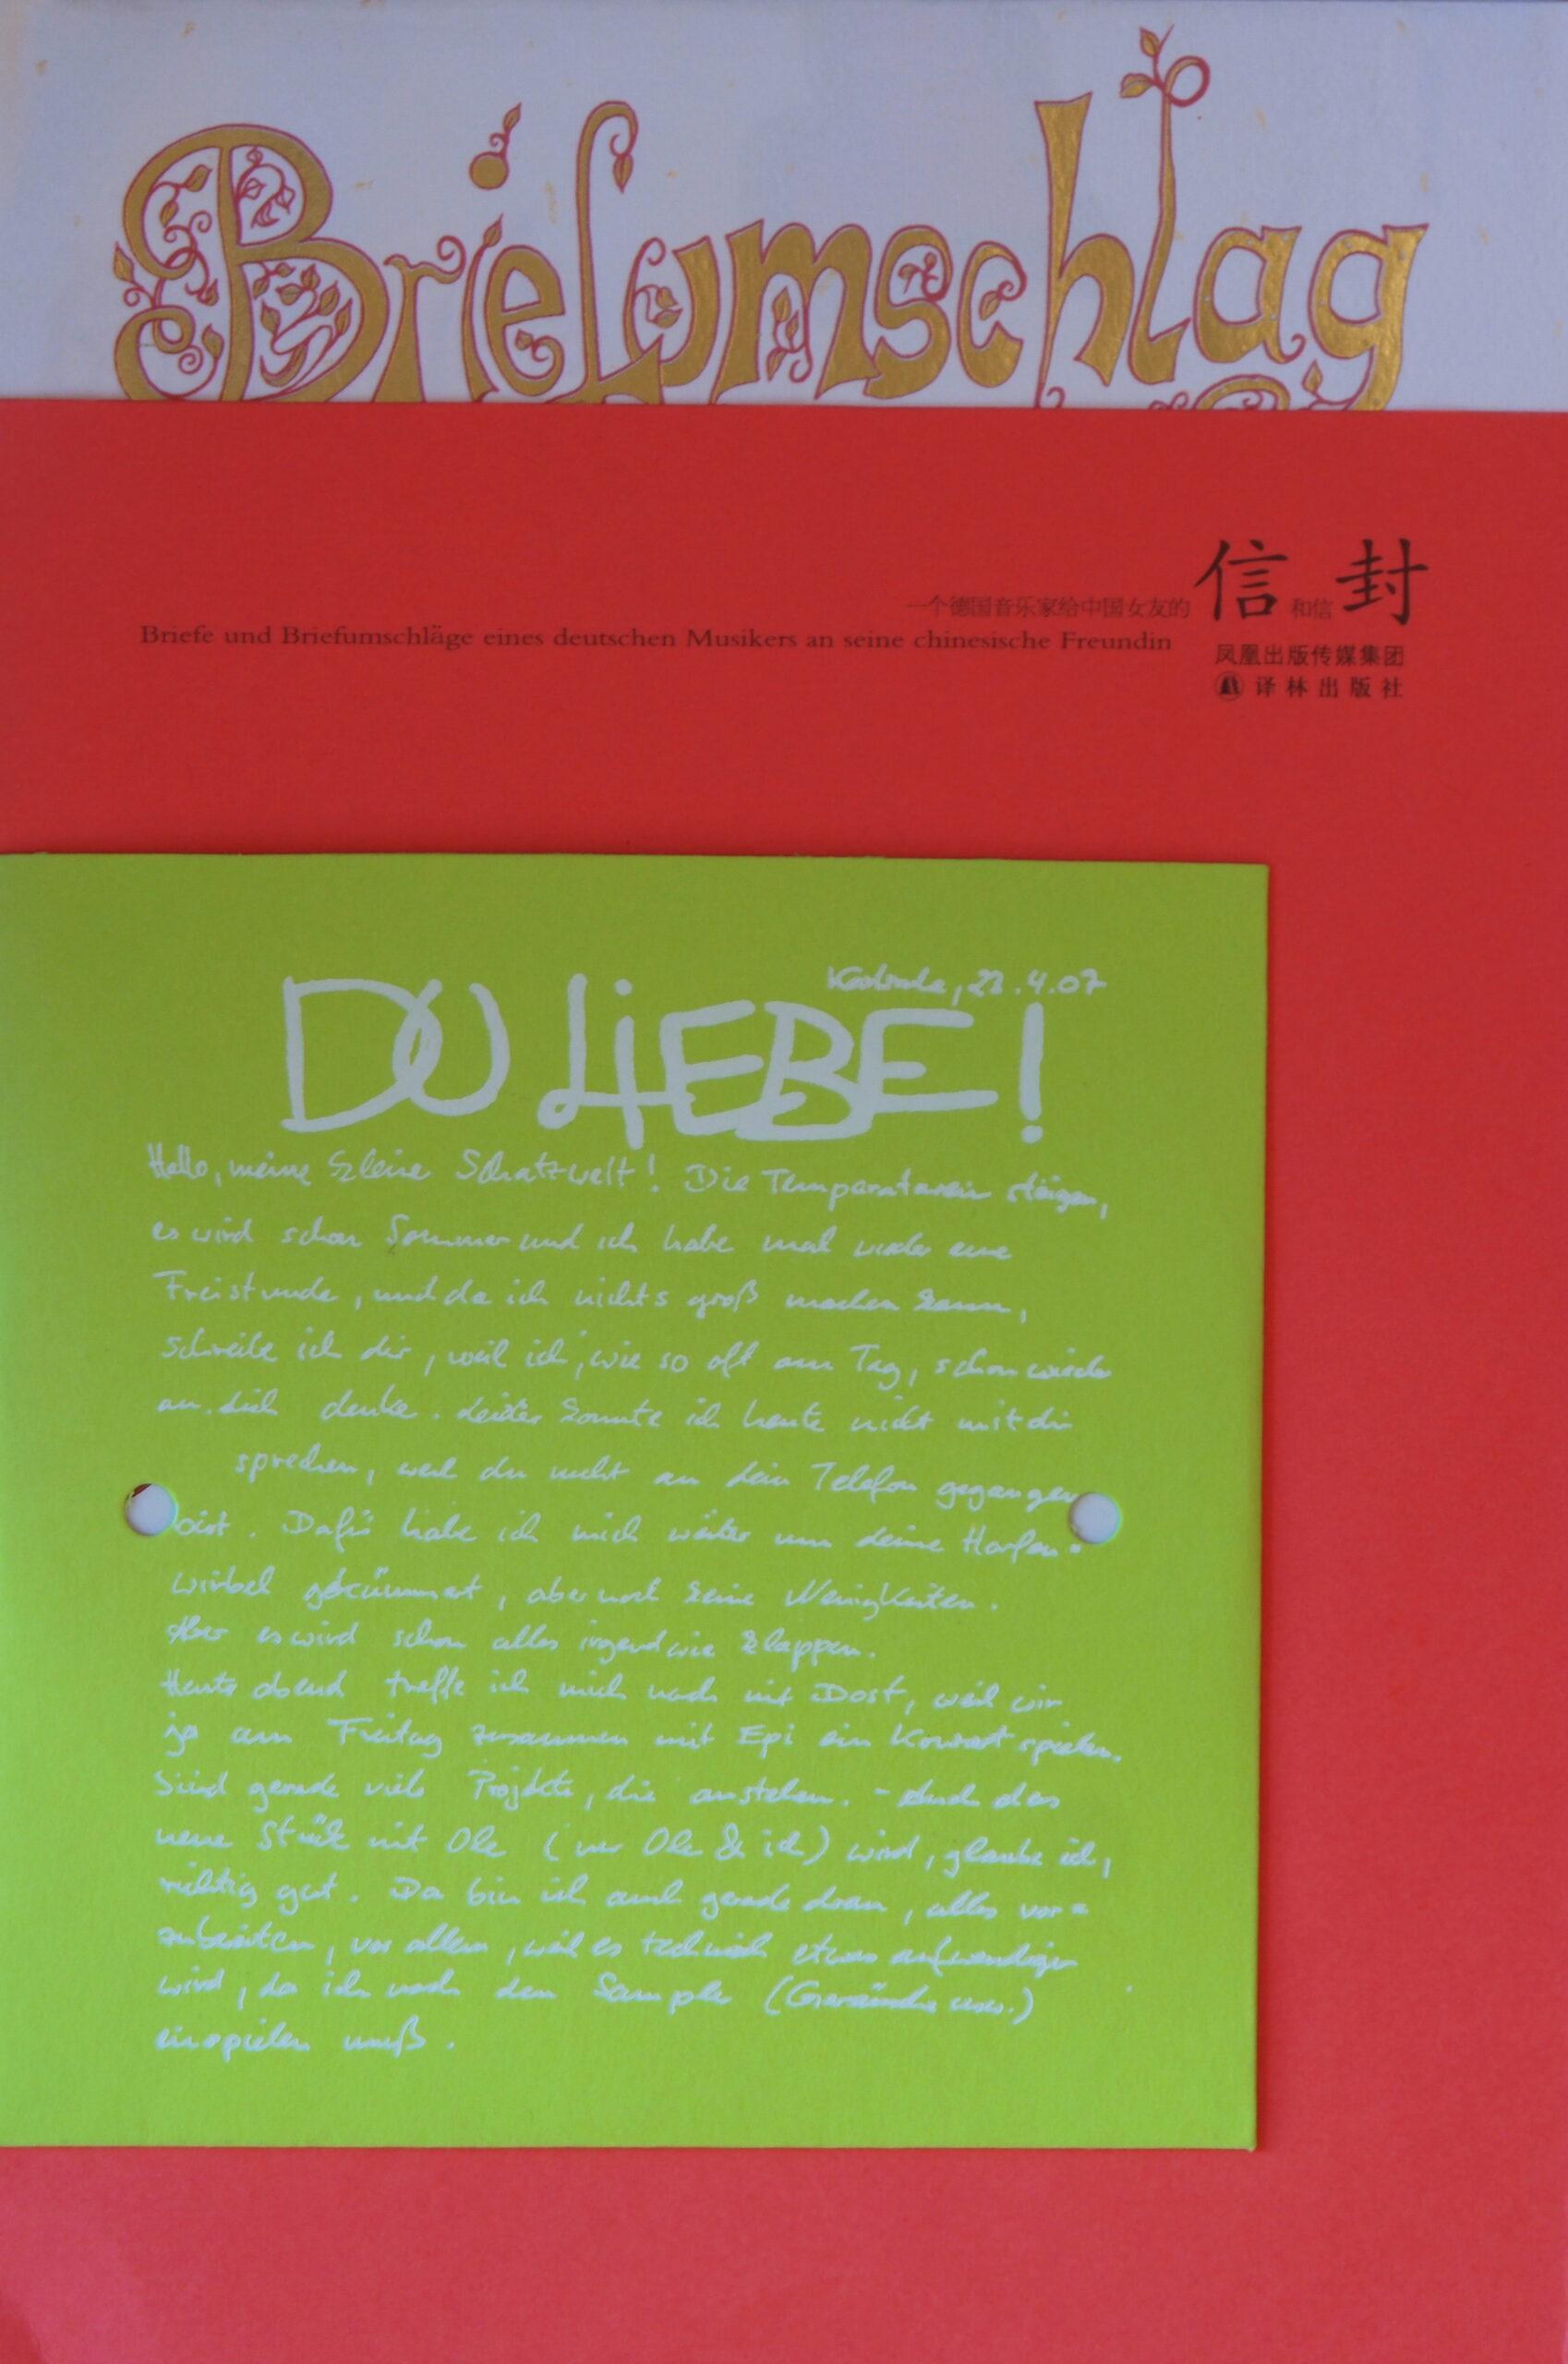 Briefumschlag
一个德国音乐家给中国女友的 信 和信 封
Briefe und Briefumschläge eines deutschen Musikers an seine chinesische Freundin
凤凰出版传媒集团
译林出版社
Karlsruhe, 23.4.07
DU LiEBE!
Hallo, meine kleine Schatzwelt! Die Temperaturen steigen,
es wird schon Sommer und ich habe mal wieder eine
Freistunde, und da ich nichts groß machen kann,
schreibe ich dir, weil ich, wie so oft am Tag, schon wieder
an dich denke. Leider konnte ich heute nicht mit dir
sprechen, weil du nicht an dein Telefon gegangen
bist. Dafür habe ich mich weiter um deine Harfen=
wirbel gekümmert, aber noch keine Neuigkeiten.
Aber es wird schon alles irgendwie klappen.
Heute abend treffe ich mich noch mit Dost, weil wir
ja am Freitag zusammen mit Epi ein Konzert spielen.
Sind gerade viele Projekte, die anstehen. - Auch das
neue Stück mit Ole (nur Ole & ich) wird, glaube ich,
richtig gut. Da bin ich auch gerade dran, alles vor=
zubereiten, vor allem, weil es technisch etwas aufwendiger
wird, da ich noch den Sampler (Geräusche usw.)
einspielen muß.